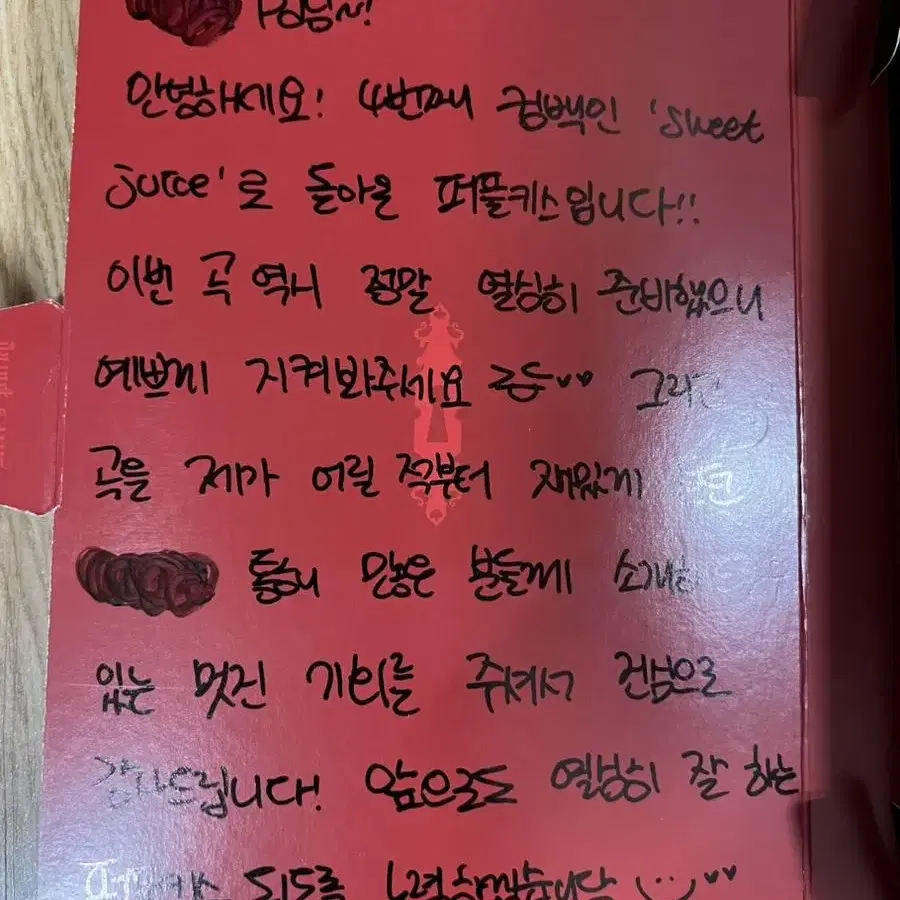 PD님~!
안녕하세요! 4번째 컴백인 'Sweet
juice'로 돌아온 퍼플키스입니다!!
이번 곡 역시 정말 열심히 준비했으니
예쁘게 지켜봐주세요 ㅎㅎ♡♡
곡을 제가 어릴 적부터 재밌게
통해 많은 분들께 소개할
있는 멋진 기회를 주셔서 진심으로
감사드립니다! 앞으로도 열심히 잘 하는
되도록 노력하겠습니다 ♡♡